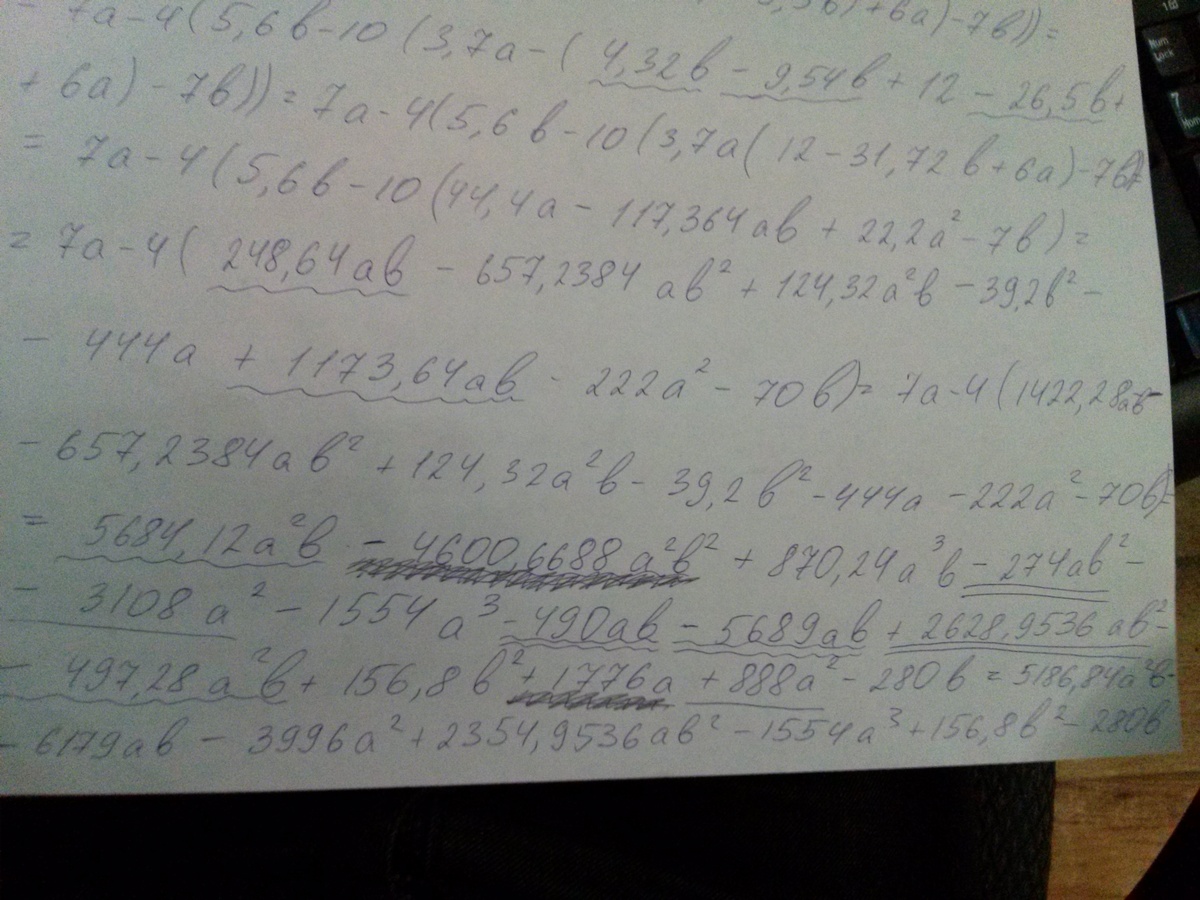 - 7a - 4(5,6в - 10(3,7a - (4,32в - 9,54в + 12 - 26,5в +
+ 6a) - 7в)) = 7a - 4(5,6в - 10(3,7a(12 - 31,72в + 6a) - 7в)=
= 7a - 4(5,6в - 10(44,4a - 117,364aв + 22,2a² - 7в) =
= 7a - 4(248,64aв - 657,2384 aв² + 124,32a²в - 39,2в² -
- 444a + 1173,64aв - 222a² - 70в) = 7a - 4(1422,28aв -
- 657,2384aв² + 124,32a²в - 39,2в² - 444a - 222a² - 70в)=
= 5684,12a²в - 4600,6688a²в² + 870,24a³в - 274aв² -
- 3108a² - 1554a³ - 490aв - 5689aв + 2628,9536aв² -
- 497,28a²в + 156,8в² + 1776a + 888a² - 280в = 5186,84a²в -
- 6179aв - 3996a² + 2354,9536aв² - 1554a³ + 156,8в² - 280в